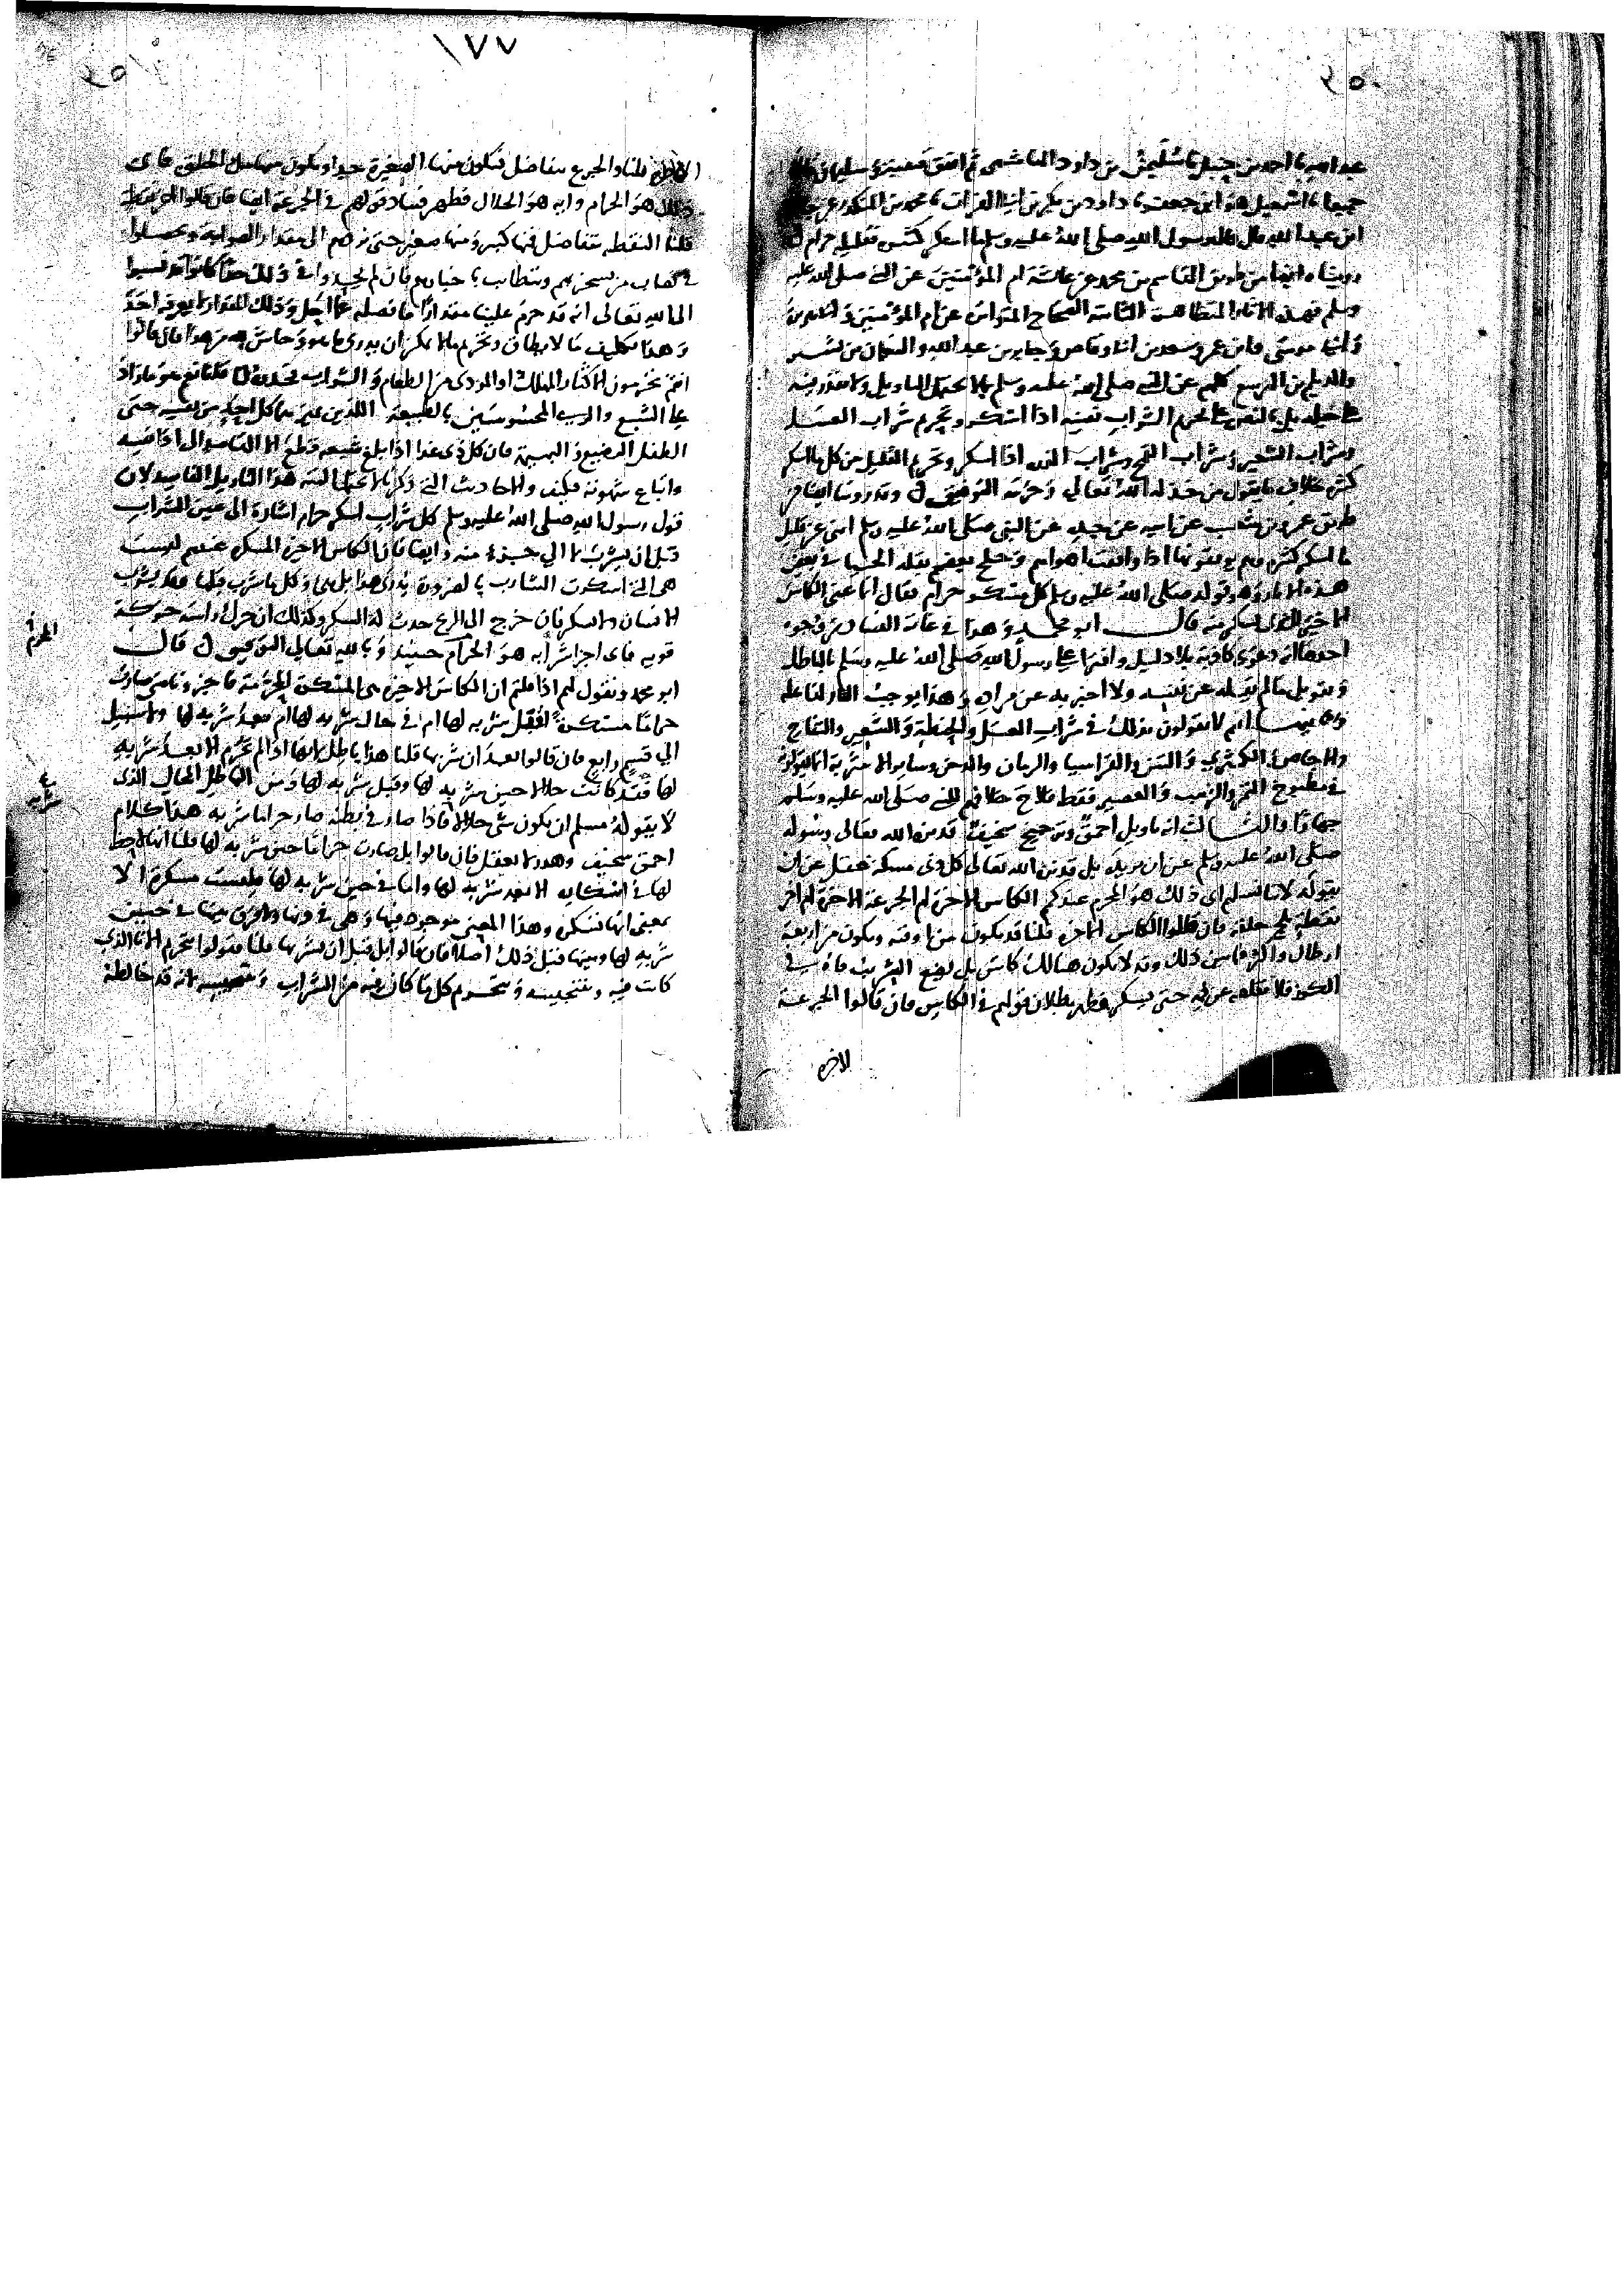 ٢٥٠
عبد الله نا احمد بن حنبل نا سليمن بن داود الهاشمي ثم اتفق
جميعا نا اسمعيل هو ابن جعفر نا داود بن بكر بن ابي الفرات نا محمد بن المنكدر عن جابر
ابن عبد الله قال قال رسول الله صلى الله عليه وسلم ما اسكر كثيره فقليله حرام
رويناه ايضا من طريق القاسم بن محمد عن عائشة ام المؤمنين عن النبي صلى الله عليه
وسلم فهذه الاثار المتظاهرة الثابتة الصحاح المتواترة عن ام المؤمنين
وابي موسى وابن عمر وسعد بن ابي وقاص وجابر بن عبد الله والنعمان بن بشير
والديلم بن الهوسع كلهم عن النبي صلى الله عليه وسلم بما لا يحتمل التاويل ولا يقدر فيه
على حيلة بل بالنص على تحريم الشراب نفسه اذا اسكر وتحريم شراب العسل
وشراب الشعير وشراب القمح وشراب الذرة اذا اسكر وتحريم القليل من كل ما اسكر
كثيره بخلاف ما يقول من خذله الله تعالى وحرمه التوفيق وقد روينا ايضا من
طريق عمرو بن شعيب عن ابيه عن جده عن النبي صلى الله عليه وسلم انهى عن قليل
ما اسكر كثيره وهم يوثقونها اذا وافقت اهواءهم وتحيل بعضهم بقلة الحيا في بعض
هذه الاثار وهو قوله صلى الله عليه وسلم كل مسكر حرام فقال انما عنى الكاس
الاخير الذي يسكر منه قال ابو محمد وهذا في غاية الفساد من وجوه
احدها انه دعوى كاذبة بلا دليل وافترا على رسول الله صلى الله عليه وسلم بالباطل
وتقويل ما لم يقله عن نفسه ولا اخبر به عن مراده وهذا يوجب النار لفاعله
وثانيها انهم لا يقولون بذلك في شراب العسل والحنطة والشعير والتفاح
والاجاص والكمثرى والتين والقراسيا والرمان والدخن وساير الاشربة انما يقولونه
في مطبوخ التمر والزبيب والعصير فقط فلاح خلافهم للنبي صلى الله عليه وسلم
جهارا والثالث انه تاويل احمق وتخريج سخيف قد نزه الله تعالى رسوله
صلى الله عليه وسلم عن ان يريده بل قد نزه الله تعالى كل ذي مسكة عقل عن ان
يقوله لاننا نسالهم اي ذلك هو المحرم عندكم الكاس الاخيرة ام الجرعة الاخيرة ام اخر
نقطة تلج حلقه فان قالوا الكاس الاخيرة قلنا قد يكون من اوقية ويكون من اربعة
ارطال واكثر فما بين ذلك وقد لا يكون هنالك كاس بل يضع الشريب فاه في
الكوز فلا يقلعه عن فيه حتى يسكر فظهر بطلان قولهم في الكاس فان قالوا الجرعة
الاخيرة
١٧٧
٢٥١
الاخيرة قلنا والجرع تتفاضل فتكون منها الصغيرة جدا وتكون منها مل الحلق فاي
ذلك هو الحرام وايه هو الحلال فظهر فساد قولهم في الجرعة ايضا فان قالوا اخر نقطة
قلنا النقط تتفاضل فمنها كبير ومنها صغير حتى نردهم الى مقدار الصوابة ويحصلوا
في نصاب من يسخر بهم ويتطايب باخبارهم فان لم يحدوا في ذلك حدا كانوا قد نسبوا
الى الله تعالى انه قد حرم علينا مقدارا ما فصله عما احل وذلك المقدار لا يعرفه احد
وهذا تكليف ما لا يطاق وتحريم ما لا يمكن ان يدرى ما هو وحاش لله من هذا فان قالوا
انتم تحرمون الاكثار المهلك او الموذي من الطعام والشراب فحدوه لنا قلنا نعم هو ما زاد
على الشبع والري المحسوسين بالطبيعة اللذين يميزهما كل احد من نفسه حتى
الطفل الرضيع والبهيمة فان كل ذي غذا اذا بلغ شبعه قطع الا القاصد الى اذى نفسه
واتباع شهوته فكيف والاحاديث التي ذكرنا لا تحتمل البتة هذا التاويل الفاسد لان
قول رسول الله صلى الله عليه وسلم كل شراب اسكر حرام اشارة الى عين الشراب
قبل ان يشرب لا الى جزء منه وايضا فان الكاس الاخيرة المسكرة عندهم ليست
هي التي اسكرت الشارب بالضرورة يدري هذا بل هي وكل ما شرب قبلها فقد يشرب
الانسان ولا يسكر فان خرج الى الريح حدث له السكر وكذلك ان حرك راسه حركة
قوية فاي اجزا شرابه هو الحرام حينئذ وبالله تعالى التوفيق قال
ابو محمد ونقول لهم اذا قلتم ان الكاس الاخيرة هي المسكرة المحرمة فاخبرونا متى صارت
حراما مسكرة اقبل شربه لها ام في حال شربه لها ام بعد شربه لها ولا سبيل
الى قسم رابع فان قالوا بعد ان شربها قلنا هذا باطل لانها اذا لم تحرم الا بعد شربه
لها فقد كانت حلالا حين شربه لها وقبل شربه لها ومن الباطل المحال الذي
لا يقوله مسلم ان يكون شي حلالا فاذا صار في بطنه صار حراما شربه هذا كلام
احمق سخيف وهذر لا يعقل فان قالوا بل صارت حراما حين شربه لها قلنا انما
لها في اسكاره الا بعد شربه لها واما في حين شربه لها فليست مسكرة الا
بمعنى انها تسكر وهذا المعنى موجود فيها وهي في دنها ولا فرق بينها في حين
شربه لها وبينها قبل ذلك اصلا فان قالوا بل قبل ان يشربها قلنا فقولوا بتحريم الانا الذي
كانت فيه وبتنجيسه وتحريم كل ما كان فيه من الشراب وتنجيسه لانه قد خالطه